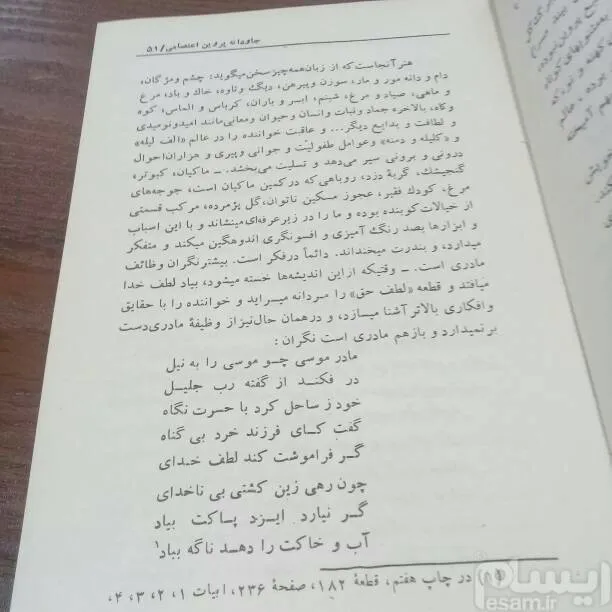 جاودانه پروین اعتصامی/۵۱
هنر آنجاست که از زبان همه چیز سخن میگوید: چشم و مژگان،
دام و دانه مور و مار، سوزن و پیرهن، دیگ و تاوه، خاک و باد، مرغ
و ماهی، صیاد و مرغ، شبنم، ابر و باران، کرباس و الماس، کوه
و کاه، بالاخره جماد و نبات و انسان و حیوان و معانی مانند امید و نومیدی
و لطافت و بدایع دیگر... و عاقبت خواننده را در عالم «الف لیله»
و «کلیله و دمنه» و عوامل طفولیت و جوانی و پیری و هزاران احوال
درونی و برونی سیر می‌دهد و تسلیت می‌بخشد. ـ ماکیان، کبوتر،
گنجیشک، گربهٔ دزد، روباهی که در کمین ماکیان است، جوجه‌های
مرغ، کودک فقیر، عجوز مسکین ناتوان، گل پژمرده، مرکب قسمتی
از خیالات کوبنده بوده و ما را در زیر عرفه‌ای مینشاند و با این اسباب
و ابزارها بصد رنگ آمیزی و افسونگری اندوهگین میکند و متفکر
میدارد، و بندرت میخنداند. دائماً در فکر است. بیشتر نگران وظائف
مادری است. ـ وقتیکه از این اندیشه‌ها خسته میشود، بیاد لطف خدا
میافتد و قطعه «لطف حق» را مردانه میسراید و خواننده را با حقایق
و افکاری بالاتر آشنا میسازد، و در همان حال نیز از وظیفهٔ مادری دست
بر نمیدارد و باز هم مادری است نگران:
مادر موسی چو موسی را به نیل
در فکند از گفته رب جلیل
خود ز ساحل کرد با حسرت نگاه
گفت کای فرزند خرد بی گناه
گر فراموشت کند لطف خدای
چون رهی زین کشتی بی ناخدای
گر نیارد ایزد پاکت بیاد
آب و خاکت را دهد ناگه بباد۱
۱) در چاپ هفتم، قطعهٔ ۱۸۲، صفحهٔ ۲۳۶، ابیات ۱، ۲، ۳، ۴،
ایسام
esam.ir